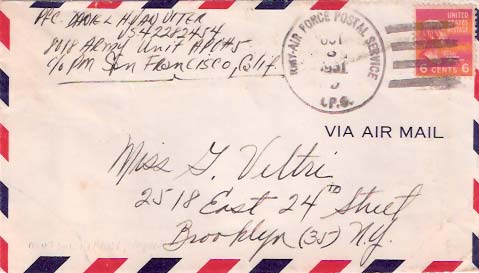 PFC. DANIEL H VAN VITER
US42282454
8078 Army Unit APO#5
c/o PM San Francisco, Calif.
ARMY-AIR FORCE POSTAL SERVICE
1951
A.P.O.
UNITED STATES POSTAGE
6 CENTS 6
VIA AIR MAIL
Miss G. Veltri
2518 East 24TH Street
Brooklyn (35) N.Y.